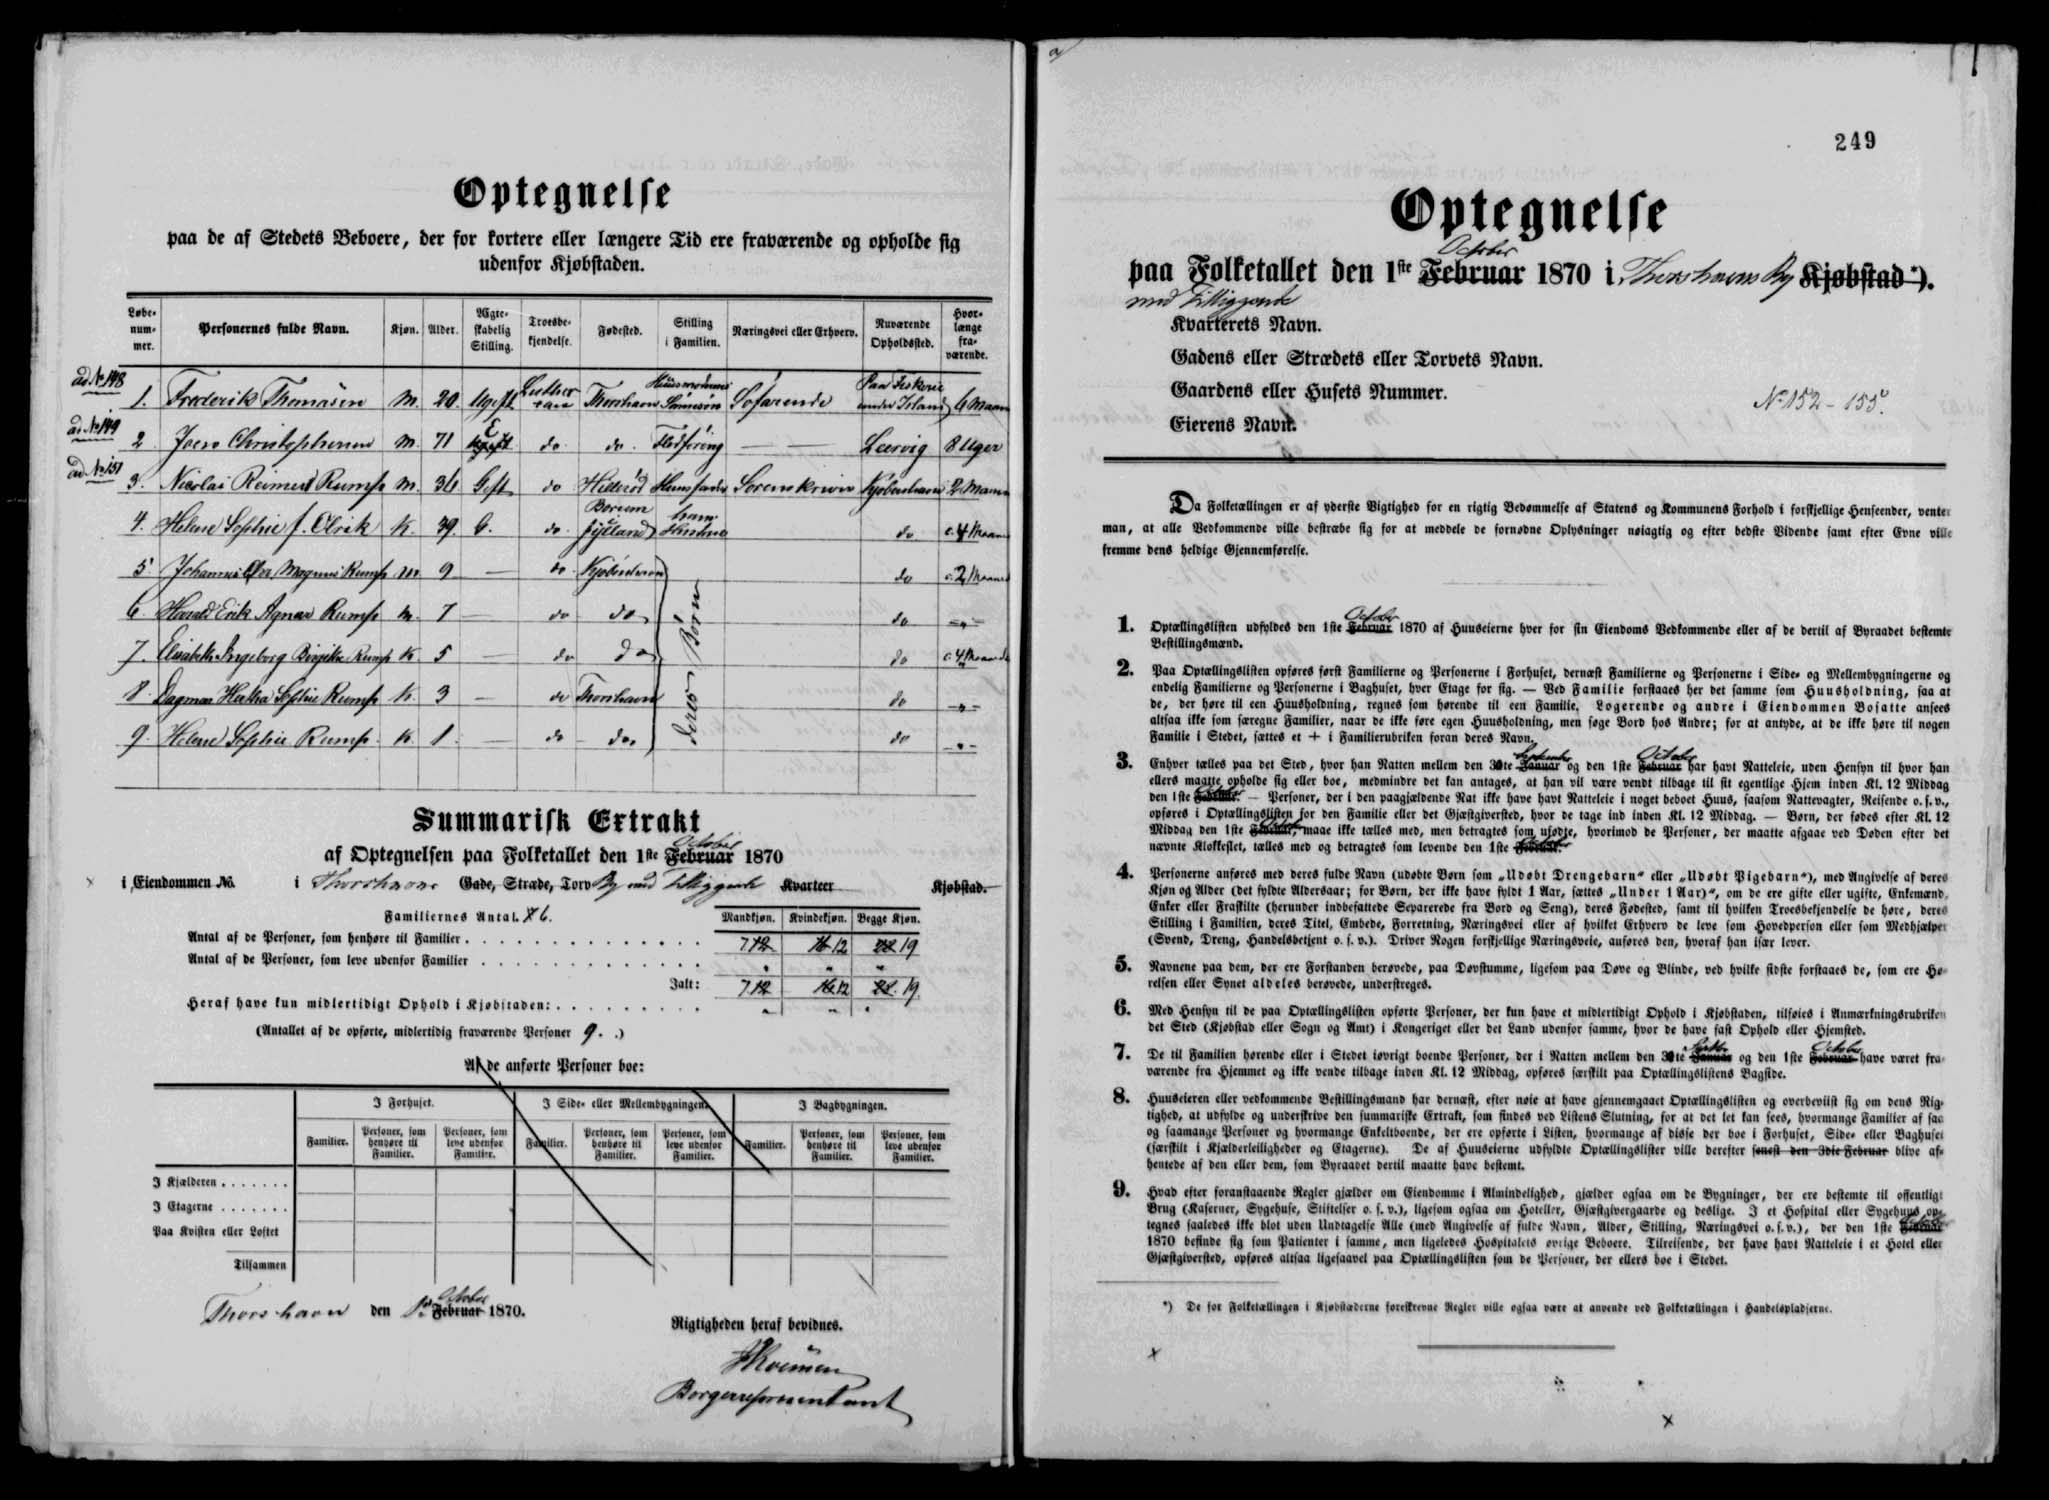 Optegnelse
paa de af Stedets Beboere, der for kortere eller længere Tid ere fraværende og opholde sig
udenfor Kjøbstaden.
Løbe-nummer. Personernes fulde Navn. Kjøn. Alder. Ægteskabelig Stilling. Troesbekjendelse. Fødested. Stilling i Familien. Næringsvei eller Erhverv. Nuværende Opholdssted. Hvorlænge fraværende.
ad No 148
1. Frederik Thomasen M. 20. Ugift Lutherane Thorshavn Huusmoderens Sønnesøn Søfarende Paa Fiskerie under Island 6 Maan
ad No 149
2 Joen Christophersen M. 71 E do do. Leervig 8 Uger
ad No 151
3. Nicolai Reimert Rumph M. 36 Gift do Hillerød Huusfader Sorenskriver Kjøbenhavn 2 Maan
4. Helene Sophie f. Ølrik K. 39. G. do. Borum Jylland hans Hustrue do c. 4 Maan
5 Johannes Magnus Rumph M. 9 — do Kjøbenhavn do c. 2 Maaned
6. Harald Erik Agnar Rumph M. 7 — do do do —"—
7. Elisabeth Ingeborg Birgitte Rumph K. 5 — do do do c. 4 Maaneder
8. Dagmar Hertha Sophie Rumph K. 3 — do Thorshavn do —"—
9. Helene Sophie Rumph. K. 1. — do do do —"—
deres Børn
Summarisk Extrakt
October
af Optegnelsen paa Folketallet den 1ste Februar 1870
i Eiendommen No. i Thorshavn Gade, Stræde, Torv By med Tilliggende Kvarteer Kjøbstad.
Familiernes Antal. 6.
Mandkjøn. Kvindekjøn. Begge Kjøn.
Antal af de Personer, som henhøre til Familier 7 12 12 19
Antal af de Personer, som leve udenfor Familier " " "
Ialt: 7 12 12 19.
Heraf have kun midlertidigt Ophold i Kjøbstaden: " " "
(Antallet af de opførte, midlertidig fraværende Personer 9.)
Af de anførte Personer boe:
I Forhuset. I Side- eller Mellembygningen. I Bagbygningen.
Familier. Personer, som henhøre til Familier. Personer, som leve udenfor Familier. Familier. Personer, som henhøre til Familier. Personer, som leve udenfor Familier. Familier. Personer, som henhøre til Familier. Personer, som leve udenfor Familier.
I Kjælderen
I Etagerne
Paa Kvisten eller Loftet
Tilsammen
October
Thorshavn den 1ste Februar 1870.
Rigtigheden heraf bevidnes.
Borgerrepræsentant
249
Optegnelse
October
paa Folketallet den 1ste Februar 1870 i Thorshavns By Kjøbstad*).
med Tilliggende
Kvarterets Navn.
Gadens eller Strædets eller Torvets Navn.
Gaardens eller Husets Nummer. No 152 - 155.
Eierens Navn.
Da Folketællingen er af yderste Vigtighed for en rigtig Bedømmelse af Statens og Kommunens Forhold i forskjellige Henseender, venter
man, at alle Vedkommende ville bestræbe sig for at meddele de fornødne Oplysninger nøiagtig og efter bedste Vidende samt efter Evne ville
fremme dens heldige Gjennemførelse.
October
1. Optællingslisten udfyldes den 1ste Februar 1870 af Huuseierne hver for sin Eiendoms Vedkommende eller af de dertil af Byraadet bestemte
Bestillingsmænd.
2. Paa Optællingslisten opføres først Familierne og Personerne i Forhuset, dernæst Familierne og Personerne i Side- og Mellembygningerne og
endelig Familierne og Personerne i Baghuset, hver Etage for sig. — Ved Familie forstaaes her det samme som Huusholdning, saa at
de, der høre til een Huusholdning, regnes som hørende til een Familie. Logerende og andre i Eiendommen Bosatte ansees
altsaa ikke som særegne Familier, naar de ikke føre egen Huusholdning, men søge Bord hos Andre; for at antyde, at de ikke høre til nogen
Familie i Stedet, sættes et + i Familierubriken foran deres Navn.
September October
3. Enhver tælles paa det Sted, hvor han Natten mellem den 30te Januar og den 1ste Februar har havt Natteleie, uden Hensyn til hvor han
ellers maatte opholde sig eller boe, medmindre det kan antages, at han vil være vendt tilbage til sit egentlige Hjem inden Kl. 12 Middag
den 1ste Februar. — Personer, der i den paagjældende Nat ikke have havt Natteleie i noget beboet Huus, saasom Nattevagter, Reisende o. s. v.,
opføres i Optællingslisten for den Familie eller det Gjæstgiversted, hvor de tage ind inden Kl. 12 Middag. — Børn, der fødes efter Kl. 12
Middag den 1ste Februar, maae ikke tælles med, men betragtes som ufødte, hvorimod de Personer, der maatte afgaae ved Døden efter det
nævnte Klokkeslet, tælles med og betragtes som levende den 1ste Februar.
4. Personerne anføres med deres fulde Navn (udøbte Børn som „Udøbt Drengebarn“ eller „Udøbt Pigebarn“), med Angivelse af deres
Kjøn og Alder (det fyldte Aldersaar; for Børn, der ikke have fyldt 1 Aar, sættes „Under 1 Aar)“, om de ere gifte eller ugifte, Enkemænd,
Enker eller Fraskilte (herunder indbefattede Separerede fra Bord og Seng), deres Fødested, samt til hvilken Troesbekjendelse de høre, deres
Stilling i Familien, deres Titel, Embede, Forretning, Næringsvei eller af hvilket Erhverv de leve som Hovedperson eller som Medhjælper
(Svend, Dreng, Handelsbetjent o. s. v.). Driver Nogen forskjellige Næringsveie, anføres den, hvoraf han især lever.
5. Navnene paa dem, der ere Forstanden berøvede, paa Døvstumme, ligesom paa Døve og Blinde, ved hvilke sidste forstaaes de, som ere Hø-
relsen eller Synet aldeles berøvede, understreges.
6. Med Hensyn til de paa Optællingslisten opførte Personer, der kun have et midlertidigt Ophold i Kjøbstaden, tilføies i Anmærkningsrubriken
det Sted (Kjøbstad eller Sogn og Amt) i Kongeriget eller det Land udenfor samme, hvor de have fast Ophold eller Hjemsted.
October
7. De til Familien hørende eller i Stedet iøvrigt boende Personer, der i Natten mellem den 30te Januar og den 1ste Februar have været fra-
værende fra Hjemmet og ikke vende tilbage inden Kl. 12 Middag, opføres særskilt paa Optællingslistens Bagside.
8. Huuseieren eller vedkommende Bestillingsmand har dernæst, efter nøie at have gjennemgaaet Optællingslisten og overbeviist sig om dens Rig-
tighed, at udfylde og underskrive den summariske Extrakt, som findes ved Listens Slutning, for at det let kan sees, hvormange Familier af saa
og saamange Personer og hvormange Enkeltboende, der ere opførte i Listen, hvormange af disse der boe i Forhuset, Side- eller Baghuset
(særskilt i Kjælderleiligheder og Etagerne). De af Huuseierne udfyldte Optællingslister ville derefter senest den 3die Februar blive af-
hentede af den eller dem, som Byraadet dertil maatte have bestemt.
9. Hvad efter foranstaaende Regler gjælder om Eiendomme i Almindelighed, gjælder ogsaa om de Bygninger, der ere bestemte til offentligt
Brug (Kaserner, Sygehuse, Stiftelser o. s. v.), ligesom ogsaa om Hoteller, Gjæstgivergaarde og deslige. I et Hospital eller Sygehuus op-
tegnes saaledes ikke blot uden Undtagelse Alle (med Angivelse af fulde Navn, Alder, Stilling, Næringsvei o. s. v.), der den 1ste Februar
1870 befinde sig som Patienter i samme, men ligeledes Hospitalets øvrige Beboere. Tilreisende, der have havt Natteleie i et Hotel eller
Gjæstgiversted, opføres altsaa ligesaavel paa Optællingslisten som de Personer, der ellers boe i Stedet.
*) De for Folketællingen i Kjøbstæderne foreskrevne Regler ville ogsaa være at anvende ved Folketællingen i Handelspladserne.